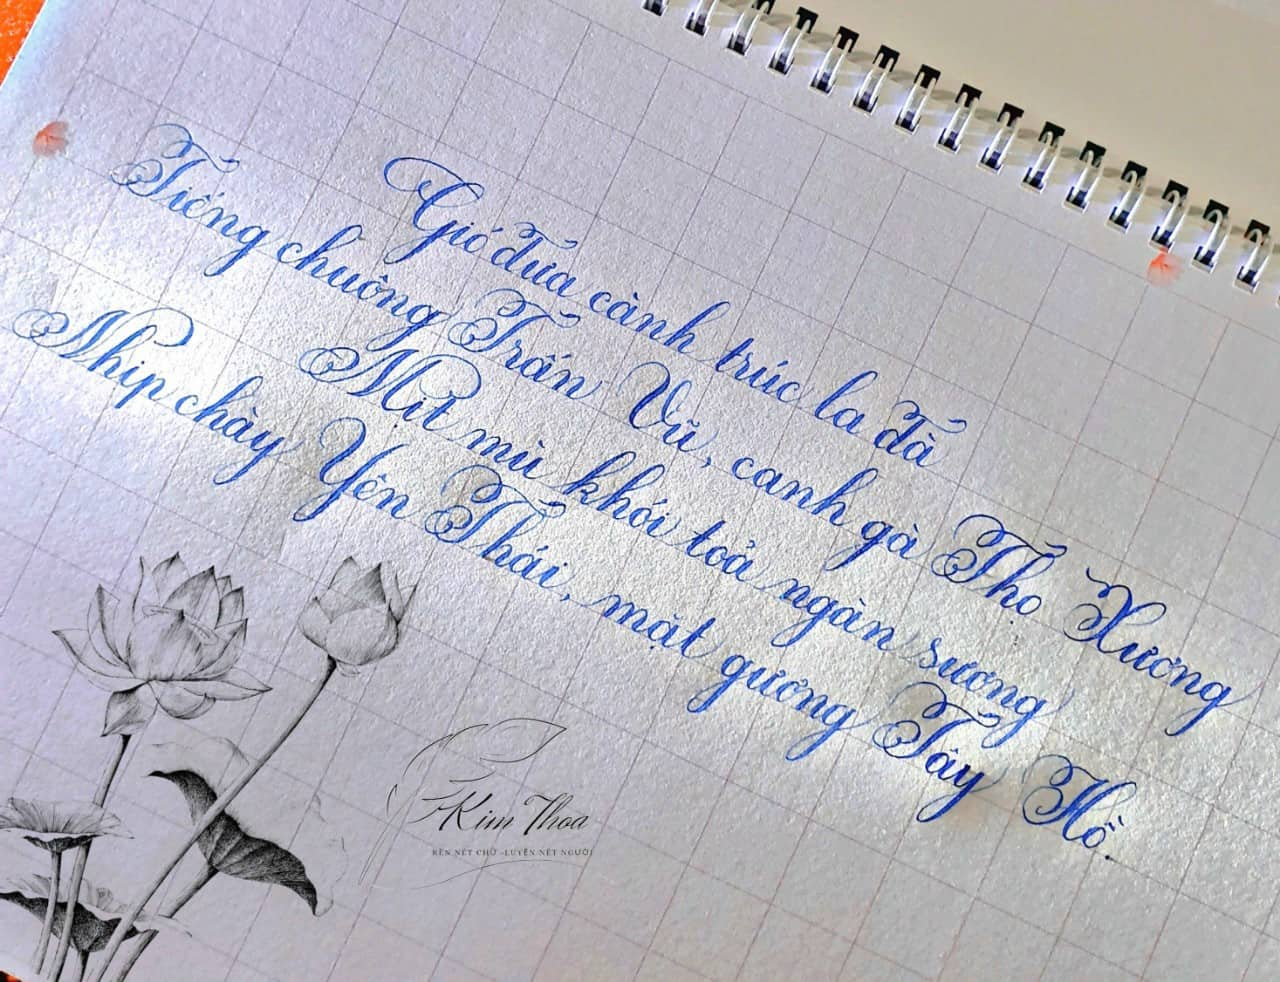 Gió đưa cành trúc la đà
Tiếng chuông Trấn Vũ, canh gà Thọ Xương
Mịt mù khói toả ngàn sương
Nhịp chày Yên Thái, mặt gương Tây Hồ.
Kim Thoa
RÈN NÉT CHỮ -LUYỆN NẾT NGƯỜI